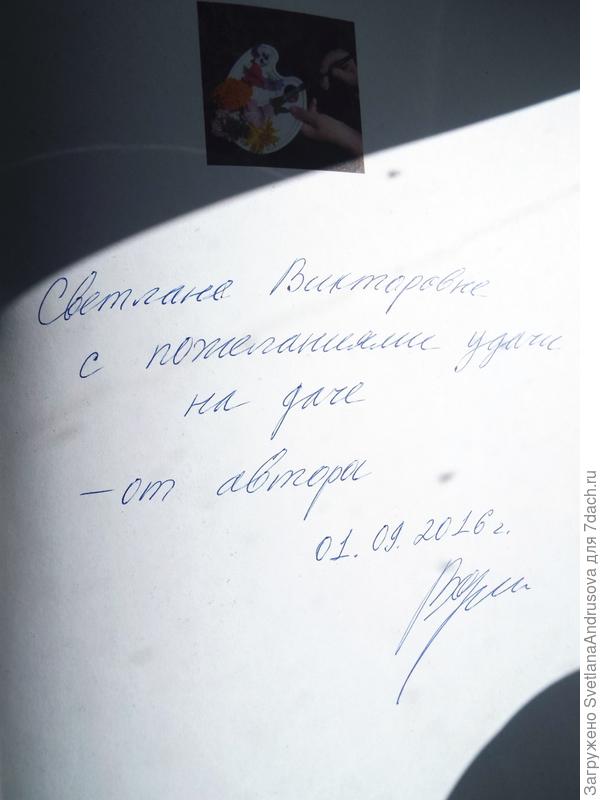 Светлане Викторовне
с пожеланиями удачи
на даче
– от автора
01.09.2016 г.
Загружено SvetlanaAndrusova для 7dach.ru